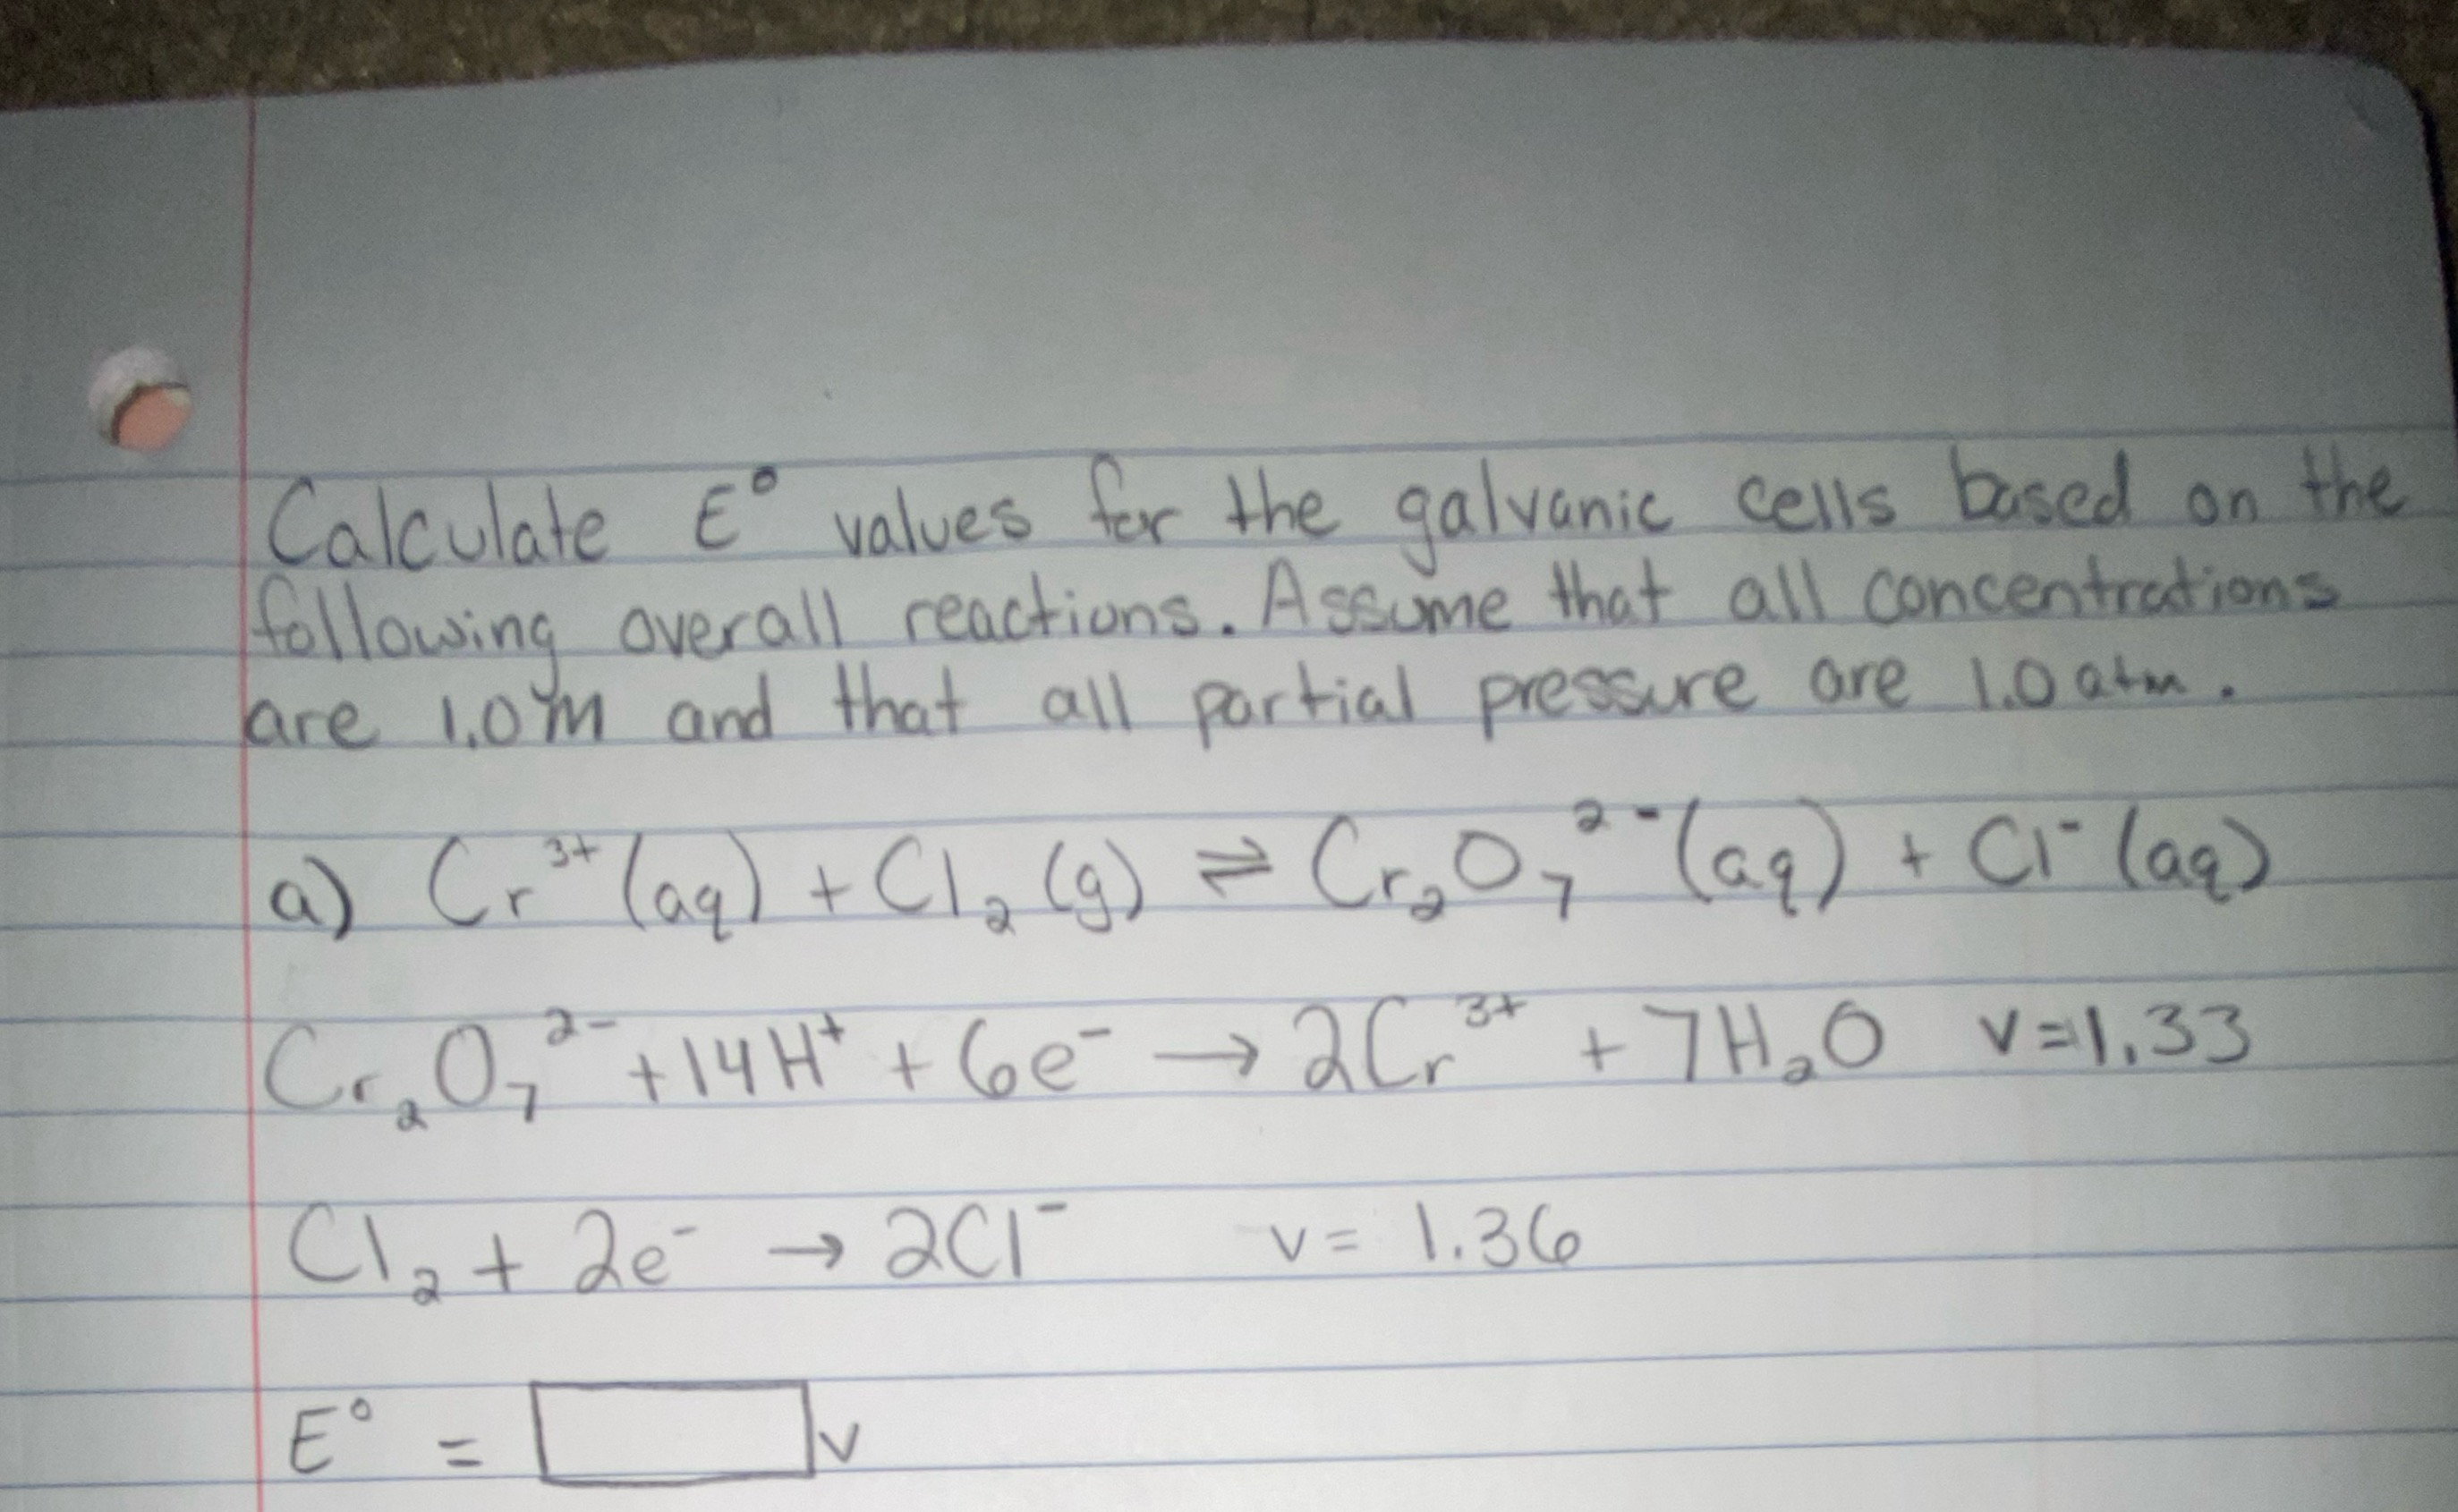 Calculate E° values for the galvanic cells based on the
following overall reactions. Assume that all concentrations
are 1.0 M and that all partial pressure are 1.0 atm.
a) Cr³⁺(aq) + Cl₂(g) ⇌ Cr₂O₇²⁻(aq) + Cl⁻(aq)
Cr₂O₇²⁻ + 14H⁺ + 6e⁻ → 2Cr³⁺ + 7H₂O v=1.33
Cl₂ + 2e⁻ → 2Cl⁻ v= 1.36
E° = v